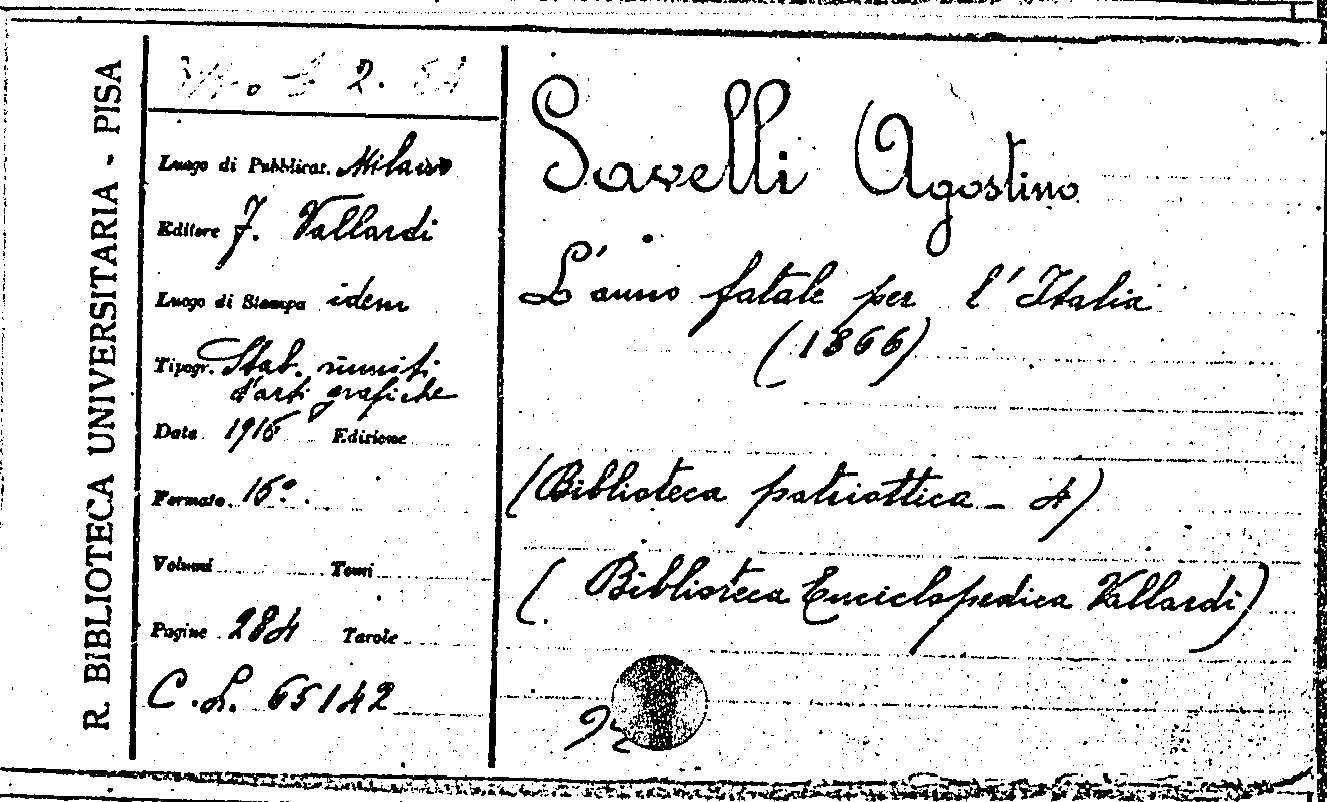 R. BIBLIOTECA UNIVERSITARIA - PISA
2.
Luogo di Pubblicaz. Milano
Editore F. Vallardi
Luogo di Stampa idem
Tipogr. Stab. riuniti
d'arti grafiche
Data 1916 Edizione
Formato 16º.
Volumi Tomi
Pagine 284 Tavole
C.L. 65142
Savelli Agostino
L'anno fatale per l'Italia
(1866)
(Biblioteca patriottica - 4)
(Biblioteca Enciclopedica Vallardi)